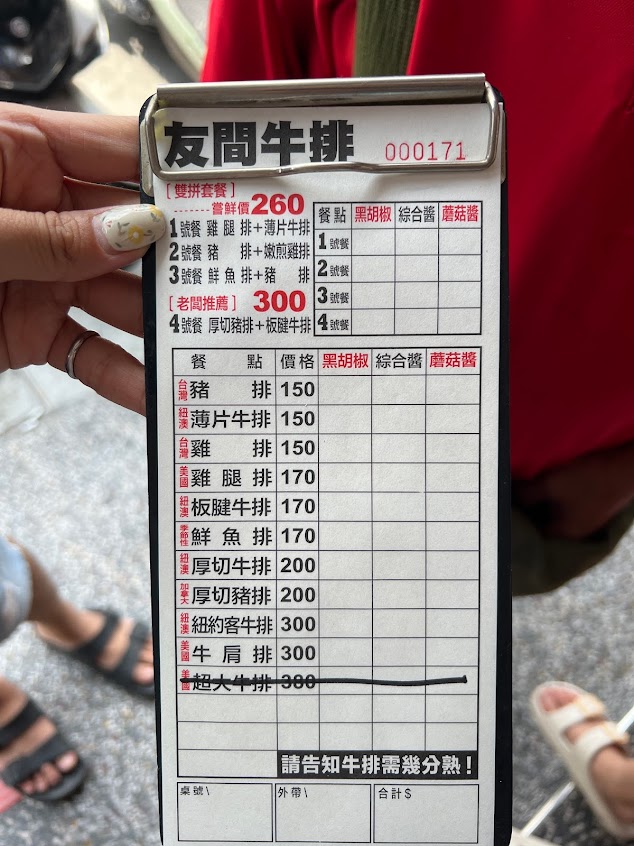 友間牛排 000171
[雙拼套餐]
嘗鮮價260
1號餐 雞腿排+薄片牛排
2號餐 豬排+嫩煎雞排
3號餐 鮮魚排+豬排
[老闆推薦] 300
4號餐 厚切豬排+板腱牛排
餐點 黑胡椒 綜合醬 蘑菇醬
1號餐
2號餐
3號餐
4號餐
餐點 價格 黑胡椒 綜合醬 蘑菇醬
台灣 豬排 150
紐澳 薄片牛排 150
台灣 雞排 150
美國 雞腿排 170
紐澳 板腱牛排 170
季節性 鮮魚排 170
紐澳 厚切牛排 200
加拿大 厚切豬排 200
紐澳 紐約客牛排 300
美國 牛肩排 300
美國 超大牛排 380
請告知牛排需幾分熟!
桌號\ 外帶\ 合計$